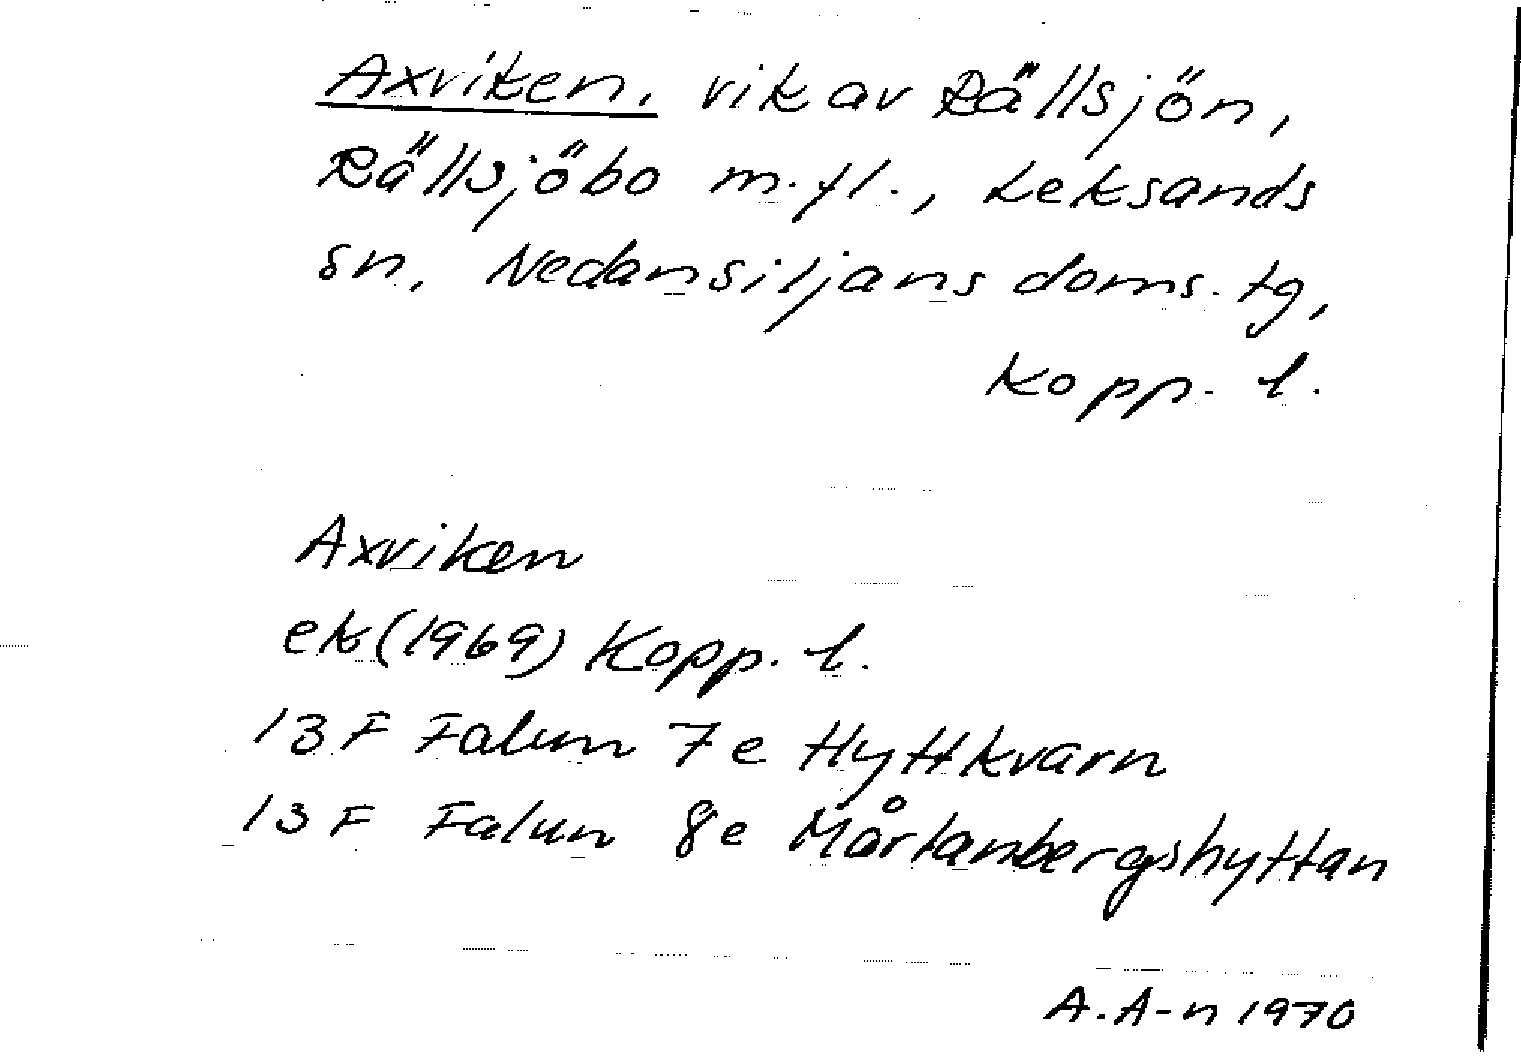 Axviken, vik av Rällsjön,
Rällsjöbo m.fl., Leksands
sn, Nedansiljans doms. tg,
Kopp. l.
Axviken
ek (1969) Kopp. l.
13 F Falun 7e Hyttkvarn
13 F Falun 8e Mårtanbergshyttan
A. A-n 1970